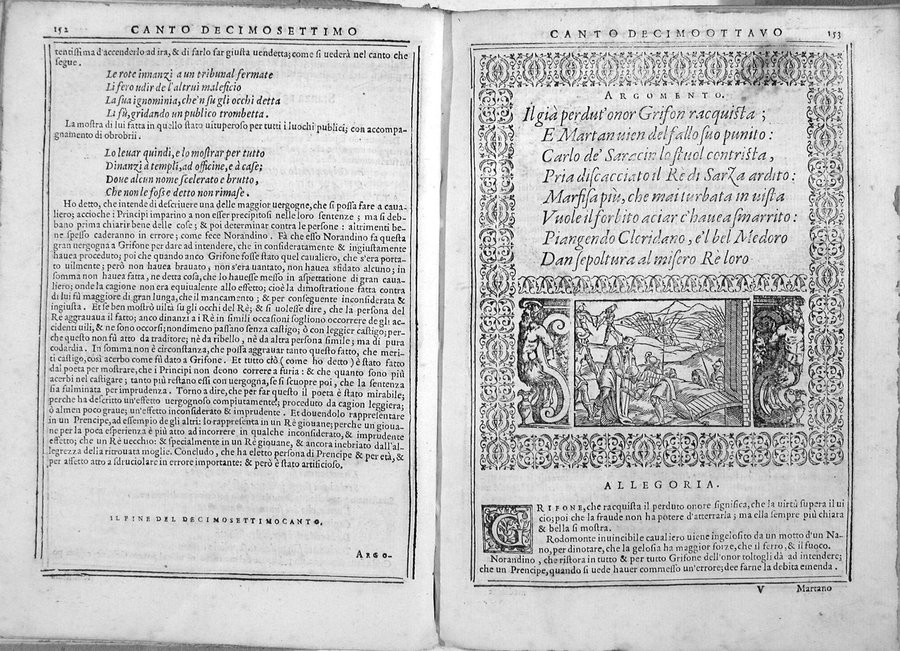 152 CANTO DECIMOSETTIMO
tentissima d'accenderlo ad ira, & di farlo far giusta uendetta; come si uederà nel canto che
segue.
Le rote innanzi a un tribunal fermate
Li fero udir de l'altrui maleficio
La sua ignominia, che'n su gli occhi detta
Li fù, gridando un publico trombetta.
La mostra di lui fatta in quello stato uituperoso per tutti i luochi publici; con accompa-
gnamento di obrobrii.
Lo leuar quindi, e lo mostrar per tutto
Dinanzi à templi, ad officine, e à case;
Doue alcun nome scelerato e brutto,
Che non le fosse detto non rimase.
Ho detto, che intende di descriuere una delle maggior uergogne, che si possa fare a caua-
liero; accioche i Principi imparino a non esser precipitosi nelle loro sentenze; ma si deb-
bano prima chiarir bene delle cose; & poi determinar contra le persone: altrimenti be-
ne spesso caderanno in errore; come fece Norandino. Fà che esso Norandino fa questa
gran uergogna a Grifone per dare ad intendere, che in consideratamente & ingiustamente
hauea proceduto; poi che quando anco Grifone fosse stato quel caualiero, che s'era porta-
to uilmente; però non hauea brauato, non s'era uantato, non hauea sfidato alcuno; in
somma non hauea fatta, ne detta cosa, che lo hauesse messo in aspettatione di gran caua-
liero; onde la cagione non era equiualente allo effetto; cioè la dimostratione fatta contra
di lui fù maggiore di gran lunga, che il mancamento; & per conseguente inconsiderata &
ingiusta. Et se ben mostrò uiltà su gli occhi del Rè; & si uolesse dire, che la persona del
Re aggrauaua il fatto; anco dinanzi a Rè in simili occasioni sogliono occorrere de gli ac-
cidenti uili, & ne sono occorsi; nondimeno passano senza castigo; ò con leggier castigo; per-
che questo non fù atto da traditore; nè da ribello, nè da altra persona simile; ma di pura
codardia. In somma non è circonstanza, che possa aggrauar tanto questo fatto, che meri-
ti castigo, così acerbo come fù dato a Grifone. Et tutto ciò (come ho detto) è stato fatto
dal poeta per mostrare, che i Principi non deono correre a furia: & che quanto sono più
acerbi nel castigare; tanto più restano essi con uergogna, se si scuopre poi, che la sentenza
sia fulminata per imprudenza. Torno a dire, che per far questo il poeta è stato mirabile;
perche ha descritto un'effetto uergognoso compiutamente; proceduto da cagion leggiera;
ò almen poco graue; un'effetto inconsiderato & imprudente. Et douendolo rappresentare
in un Prencipe, ad essempio de gli altri: lo rappresenta in un Rè giouane; perche un gioua-
ne per la poca esperienza è più atto ad incorrere in qualche inconsiderato, & imprudente
effetto; che un Rè uecchio: & specialmente in un Rè giouane, & ancora inebriato dall'al-
legrezza della ritrouata moglie. Concludo, che ha eletto persona di Prencipe & per età, &
per affetto atto a sdruciolare in errore importante; & però è stato artificioso.
IL FINE DEL DECIMOSETTIMO CANTO.
ARGO-
CANTO DECIMOOTTAVO 153
ARGOMENTO.
Il già perdut'onor Grifon racquista;
E Martan uien del fallo suo punito:
Carlo de' Saracin lo stuol contrista,
Pria discacciato il Re di Sarza ardito:
Marfisa più, che mai turbata in uista
Vuole il forbito aciar c'hauea smarrito:
Piangendo Cleridano, e'l bel Medoro
Dan sepoltura al misero Re loro
ALLEGORIA.
GRIFONE, che racquista il perduto onore significa, che la uirtù supera il ui
cio; poi che la fraude non ha potere d'atterrarla; ma ella sempre più chiara
& bella si mostra.
Rodomonte inuincibile caualiero uiene ingelosito da un motto d'un Na-
no, per dinotare, che la gelosia ha maggior forze, che il ferro, & il fuoco.
Norandino, che ristora in tutto & per tutto Grifone dell'onor toltogli dà ad intendere;
che un Prencipe, quando si uede hauer commesso un'errore; dee farne la debita emenda.
V Martano